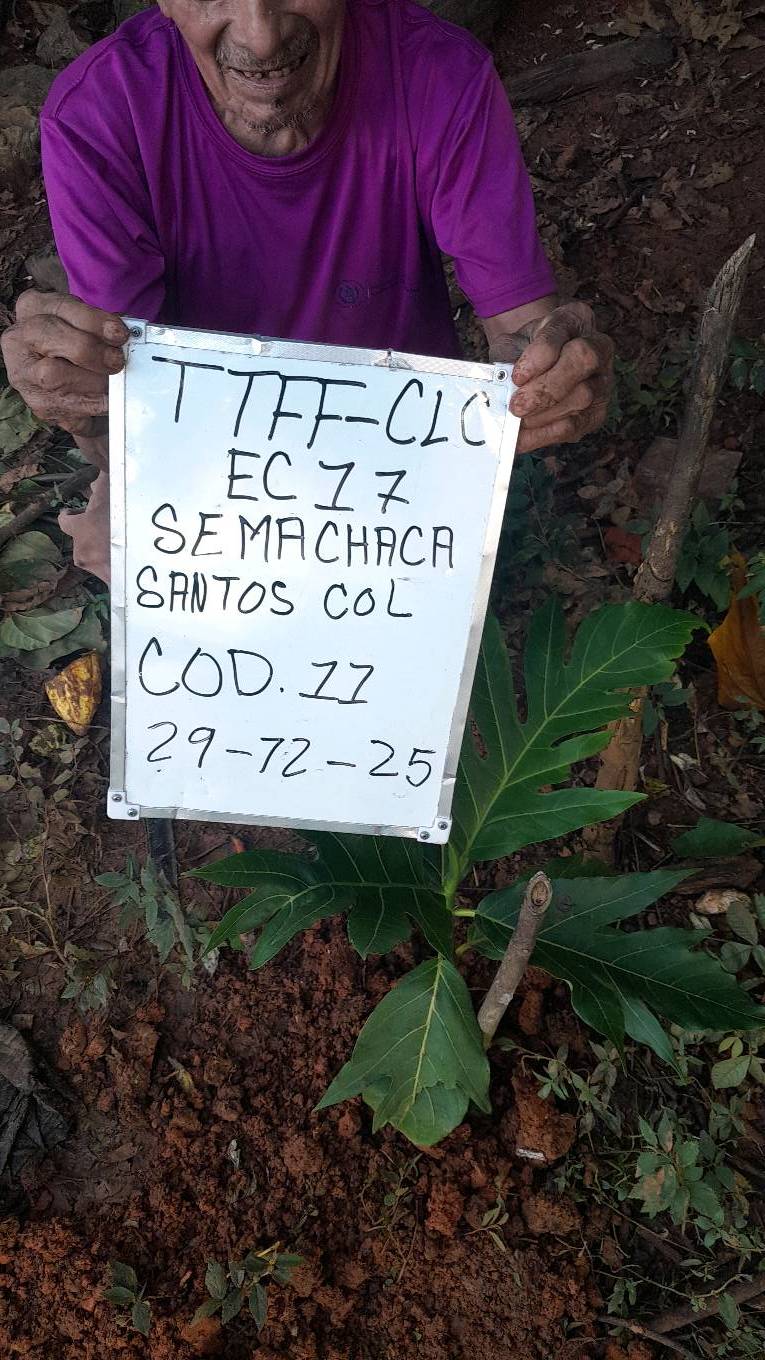 TTFF-CLC
EC 17
SEMACHACA
SANTOS COL
COD. 11
29-12-25